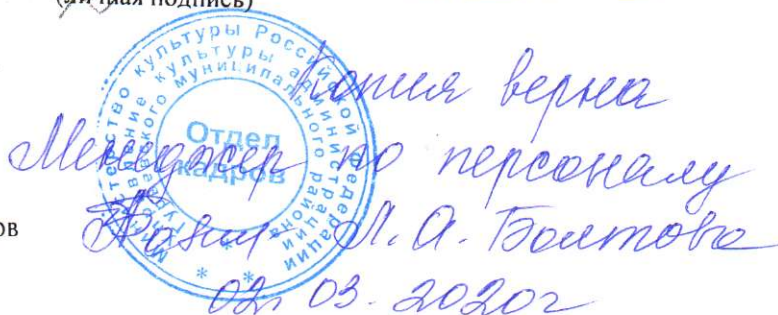 (личная подпись)
Министерство культуры Российской Федерации
культуры администрации
муниципального района
Отдел
кадров
Копия верна
Менеджер по персоналу
Л. А. Болтова
ов
02. 03. 2020г